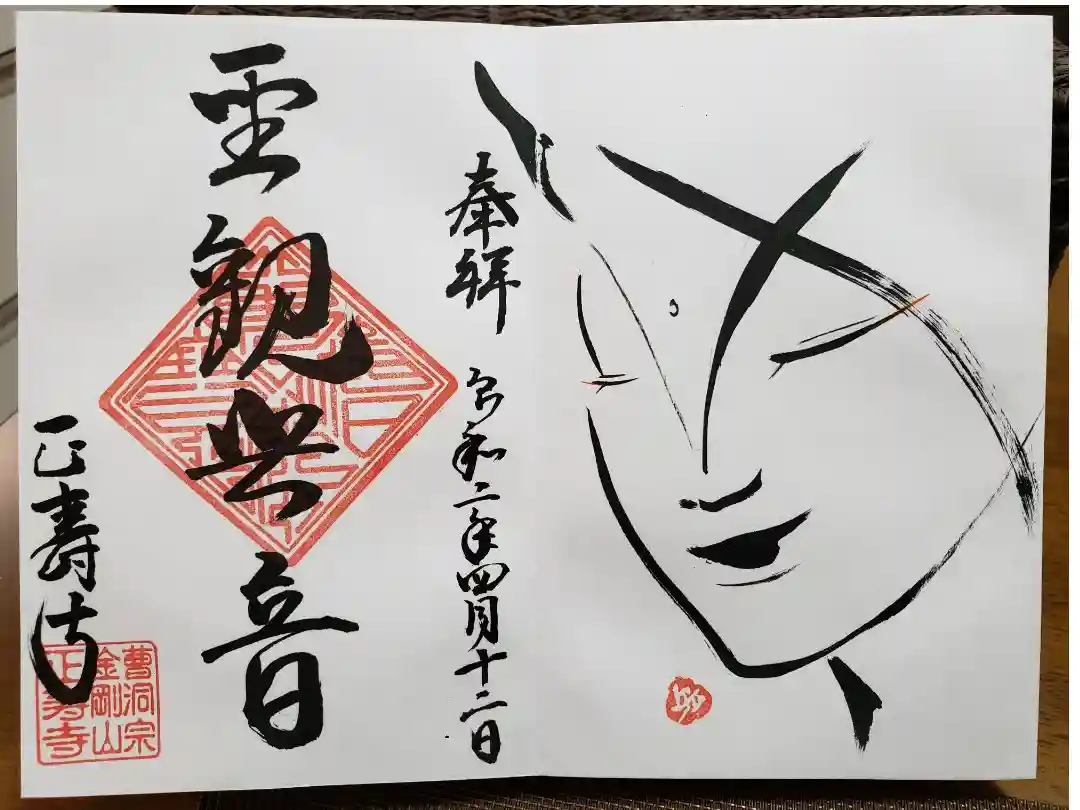 奉拝
令和二年四月十二日
聖観世音
正壽寺
曹洞宗
金剛山
正寿寺